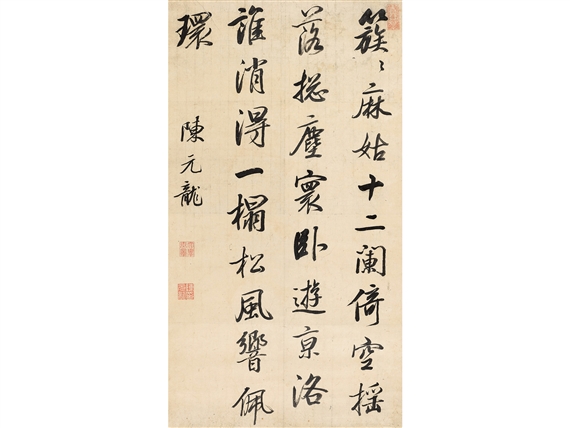 簇〻麻姑十二闌倚空搖
落摠塵寰卧遊京洛
誰消得一榻松風響佩
環
陳元龍